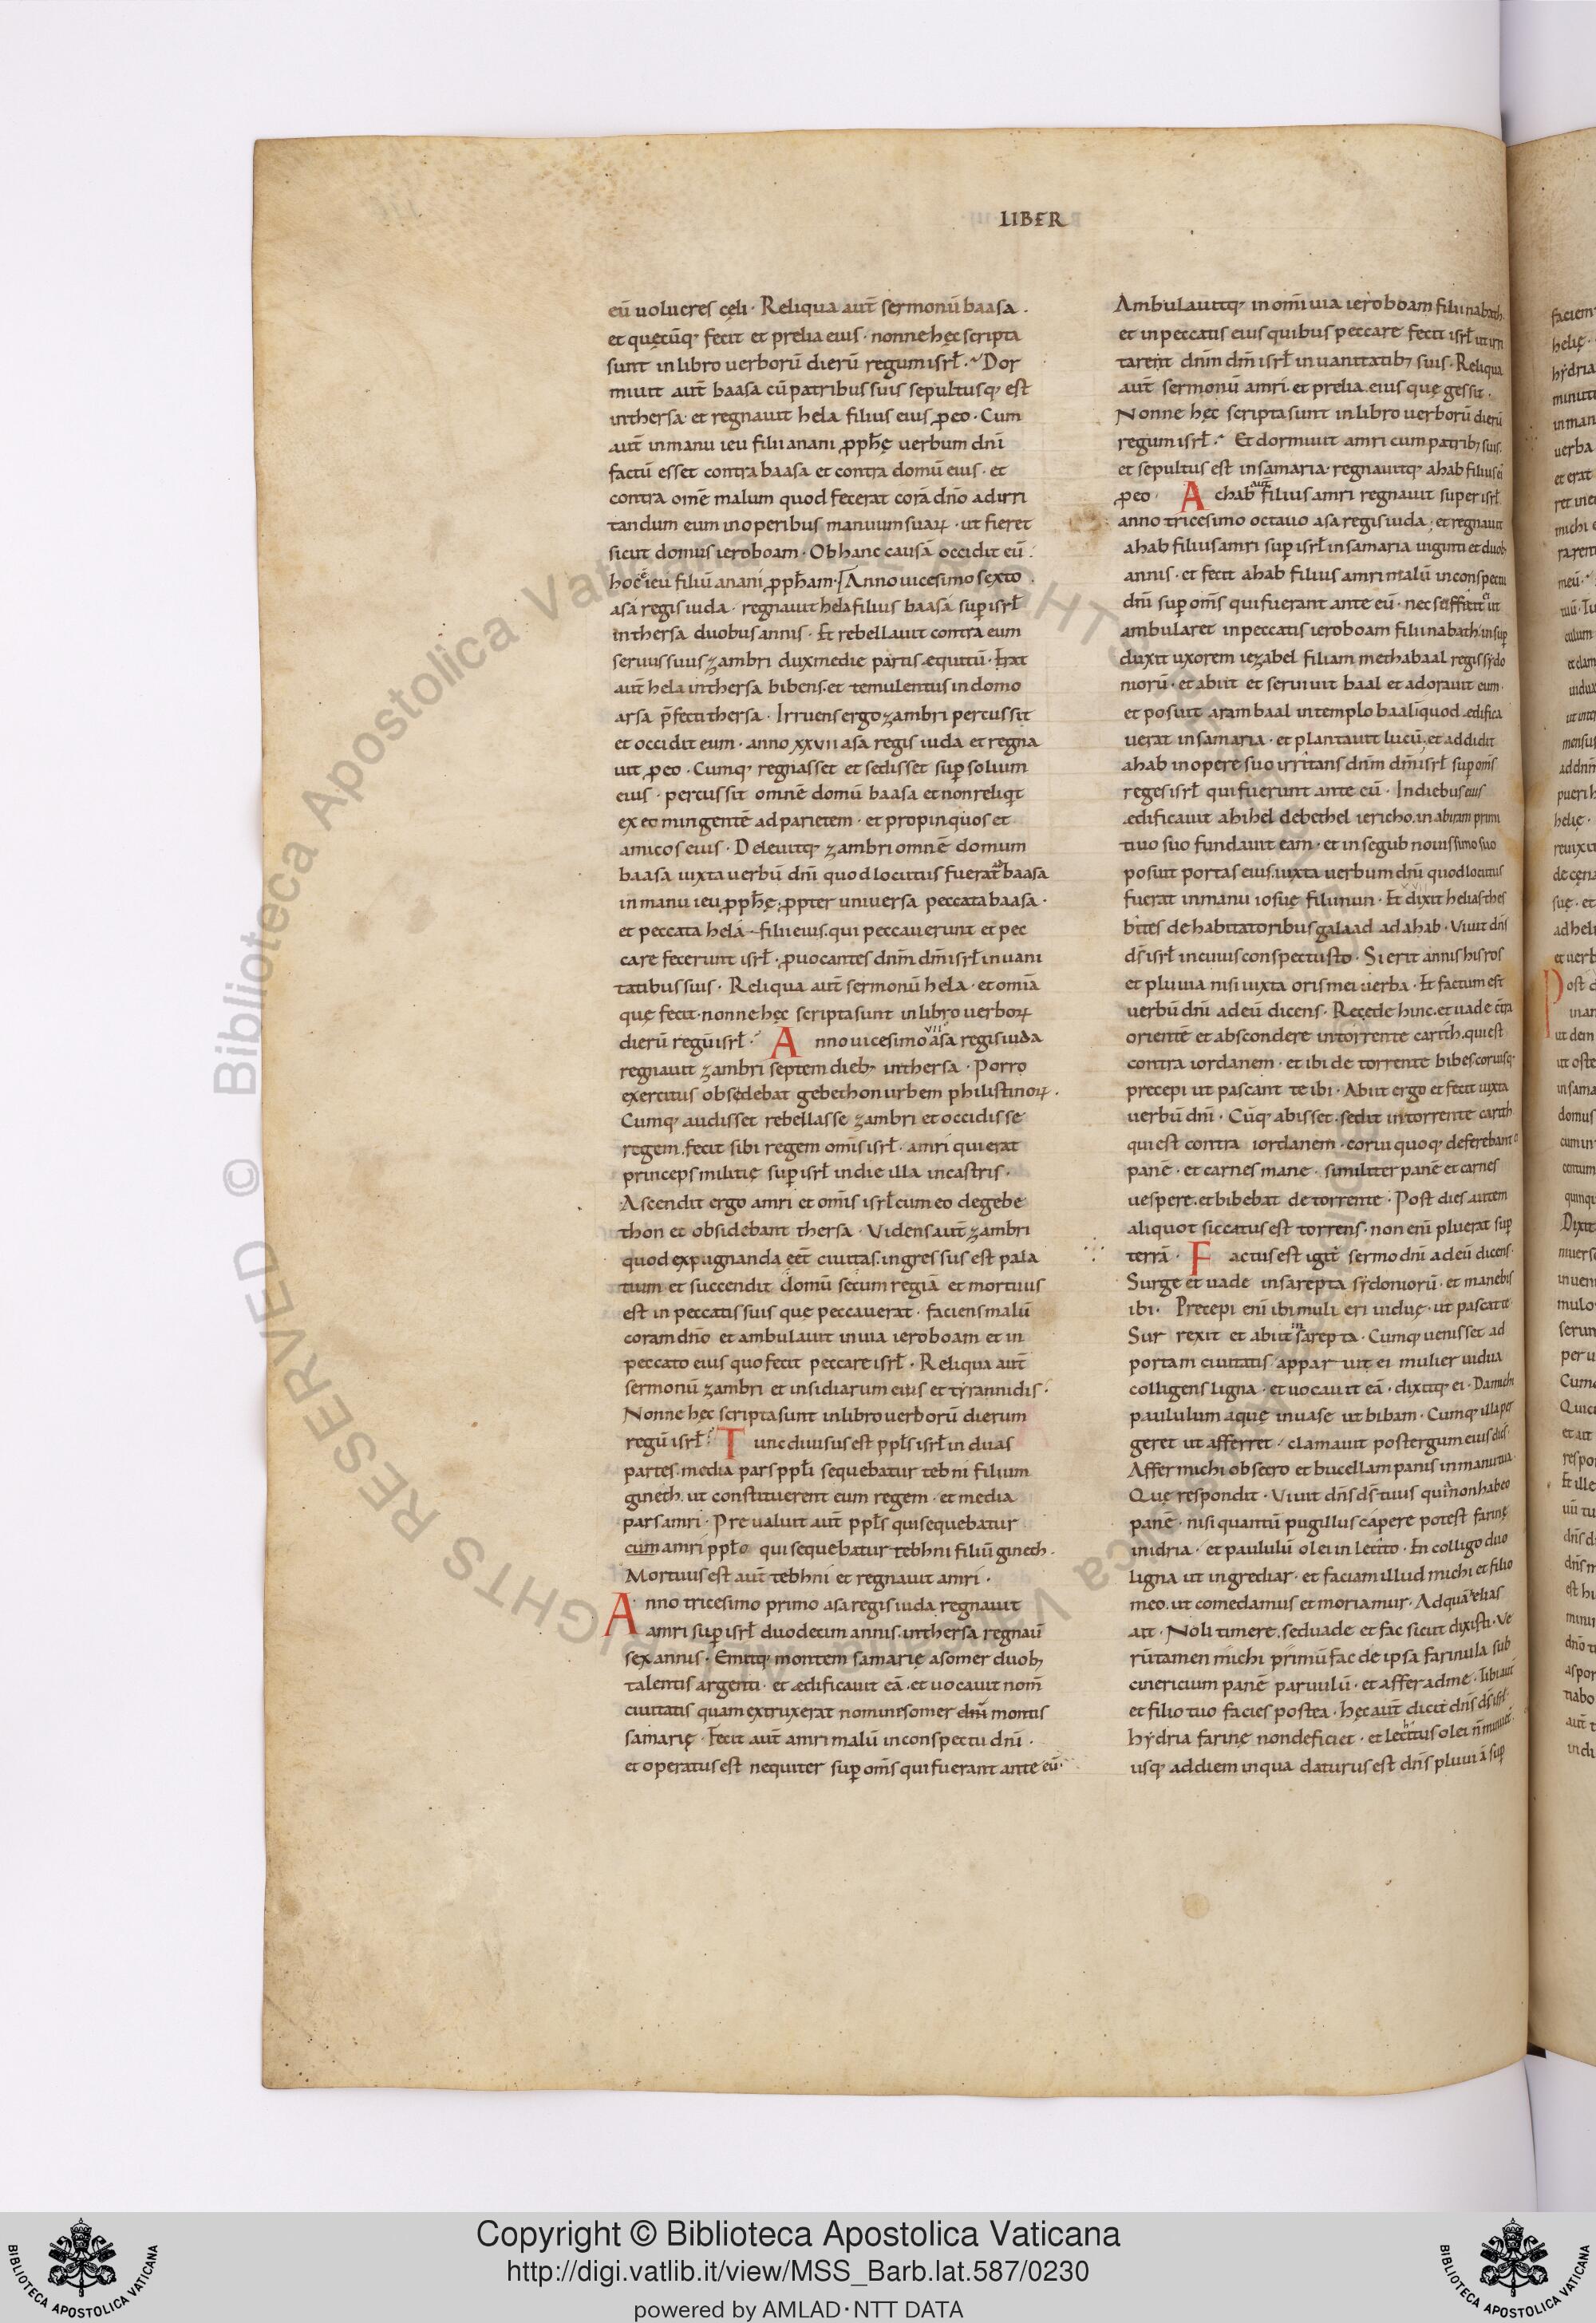 LIBER
eū uolucres cęli · Reliqua aut̄ sermonū baasa ·
et quęcūq; fecit et prelia eius · nonne hęc scripta
sunt in libro uerborū dierū regum isrł · Dor
miuit aut̄ baasa cū patribus suis sepultusq; est
in thersa · et regnauit hela filius eius ꝓ eo · Cum
aut̄ in manu ieu filii anani ꝓph̄ę uerbum dn̄i
factū esset contra baasa et contra domū eius · et
contra omē malum quod fecerat corā dn̄o ad irri
tandum eum in operibus manuum suaꝝ · ut fieret
sicut domus ieroboam · Ob hanc causā occidit eū ·
hoc ē ieu filiū anani ꝓph̄am · Anno uicesimo sexto ·
asa regis iuda · regnauit hela filius baasa suꝑ isrł
in thersa duobus annis · Et rebellauit contra eum
seruus suus zambri dux medie partis equitū · Erat
aut̄ hela in thersa bibens · et temulentus in domo
arsa p̄fecti thersa · Irruens ergo zambri percussit
et occidit eum · anno xxvii asa regis iuda et regna
uit ꝓ eo · Cumq; regnasset et sedisset suꝑ solium
eius · percussit omnē domū baasa et non reliqit
ex eo mingentē ad parietem · et propinquos et
amicos eius · Deleuitq; zambri omnē domum
baasa iuxta uerbū dn̄i quod locutus fuerat ad baasa
in manu ieu ꝓph̄ę · ꝓpter uniuersa peccata baasa ·
et peccata hela filii eius · qui peccauerunt et pec
care fecerunt isrł · ꝓuocantes dn̄m dm̄ isrł in uani
tatibus suis · Reliqua aut̄ sermonū hela · et omīa
quę fecit · nonne hęc scripta sunt in libro uerboꝝ
dierū regū isrł · Anno uicesimo vii asa regis iuda
regnauit zambri septem dieb; in thersa · Porro
exercitus obsedebat gebethon urbem philistinoꝝ ·
Cumq; audisset rebellasse zambri et occidisse
regem · fecit sibi regem omis isrł · amri qui erat
princeps militię suꝑ isrł in die illa in castris ·
Ascendit ergo amri et om̄is isrł cum eo de gebe
thon et obsidebant thersa · Videns aut̄ zambri
quod expugnanda eet̄ ciuitas · ingressus est pala
tium et succendit domū secum regiā et mortuus
est in peccatis suis quę peccauerat · faciens malū
coram dn̄o et ambulauit in uia ieroboam et in
peccato eius quo fecit peccare isrł · Reliqua aut̄
sermonū zambri et insidiarum eius et tẏrannidis ·
Nonne hęc scripta sunt in libro uerborū dierum
regū isrł · Tunc diuisus est ppl̄s isrł in duas
partes · media pars ppl̄i sequebatur tebni filium
gineth · ut constituerent eum regem · et media
pars amri · Preualuit aut̄ ppl̄s qui sequebatur
cum amri ppl̄o qui sequebatur tebhni filiū gineth ·
Mortuus est aut̄ tebhni et regnauit amri ·
Anno tricesimo primo asa regis iuda regnauit
amri suꝑ isrł duodecim annis · in thersa regnau̅
sex annis · Emitq; montem samarię a somer duob;
talentis argenti · et ædificauit eā · et uocauit nom̄
ciuitatis quam extruxerat nomine somer dn̄i montis
samarię · Fecit aut̄ amri malū in conspectu dn̄i ·
et operatus est nequiter suꝑ om̄s qui fuerant ante eū ·
Ambulauitq; in om̄i uia ieroboam filii nabath ·
et in peccatis eius quibus peccare fecit isrł ut irri
tarent dn̄m dm̄ isrł in uanitatib; suis · Reliqua
aut̄ sermonū amri et prelia eius quę gessit ·
Nonne hęc scripta sunt in libro uerborū dierū
regum isrł · Et dormiuit amri cum patrib; suis ·
et sepultus est in samaria · regnauitq; ahab filius ei
ꝓ eo · Achab aut̄ filius amri regnauit super isrł
anno tricesimo octauo asa regis iuda · et regnauit
ahab filius amri suꝑ isrł in samaria uiginti et duob
annis · et fecit ahab filius amri malū in conspectu
dn̄i suꝑ om̄s qui fuerant ante eū · nec suffitit ut
ambularet in peccatis ieroboam filii nabath · insuꝑ
duxit uxorem iezabel filiam methabaal regis sẏdo
niorū · et abiit et seruiuit baal et adorauit eum ·
et posuit aram baal in templo baal quod ædifica
uerat in samaria · et plantauit lucū · et addidit
ahab in opere suo irritans dn̄m dm̄ isrł suꝑ om̄s
reges isrł qui fuerunt ante eū · In diebus eius
ædificauit ahihel de bethel iericho · in abiram primi
tiuo suo fundauit eam · et in segub nouissimo suo
posuit portas eius · iuxta uerbum dn̄i quod locutus
fuerat in manu iosuę filii nun · Et dixit helias thes
bites de habitatoribus galaad ad ahab · Viuit dn̄s
ds̄ isrł in cuius conspectu sto · Si erit annis his ros
et pluuia nisi iuxta oris mei uerba · Et factum est
uerbū dn̄i ad eū dicens · Recede hinc · et uade cōtra
orientē et abscondere in torrente carith · qui est
contra iordanem · et ibi de torrente bibes · coruisq;
precepi ut pascant te ibi · Abiit ergo et fecit iuxta
uerbū dn̄i · Cūq; abisset · sedit in torrente carith
qui est contra iordanem · corui quoq; deferebant ei
panē · et carnes mane · similiter panē et carnes
uespere · et bibebat de torrente · Post dies autem
aliquot siccatus est torrens · non enī pluerat suꝑ
terrā · Factus est igit̄ sermo dn̄i ad eū dicens ·
Surge et uade in sarepta sẏdoniorū · et manebis
ibi · Precepi enī ibi mulieri uiduę · ut pascat te
Surrexit et abiit in sarepta · Cumq; uenisset ad
portam ciuitatis apparuit ei mulier uidua
colligens ligna · et uocauit eā · dixitq; ei · Da michi
paululum aquę in uase ut bibam · Cumq; illa per
geret ut afferret · clamauit post tergum eius
Affer michi obsecro et bucellam panis in manu tua ·
Quę respondit · Viuit dn̄s ds̄ tuus quia non habeo
panē · nisi quantū pugillus capere potest farinę
in idria · et paululū olei in lecito · En colligo duo
ligna ut ingrediar · et faciam illud michi et filio
meo · ut comedamus et moriamur · Ad quā helias
ait · Noli timere · sed uade et fac sicut dixisti · Ve
rūtamen michi primū fac de ipsa farinula sub
cinericium panē paruulū · et affer ad me · tibi aut̄
et filio tuo facies postea · hęc aut̄ dicit dn̄s ds̄ isrł ·
hẏdria farinę non deficiet · et lecitus olei n̄ minuet̄ ·
usq; ad diem in qua daturus est dn̄s pluuiā suꝑ
Copyright © Biblioteca Apostolica Vaticana
http://digi.vatlib.it/view/MSS_Barb.lat.587/0230
powered by AMLAD · NTT DATA